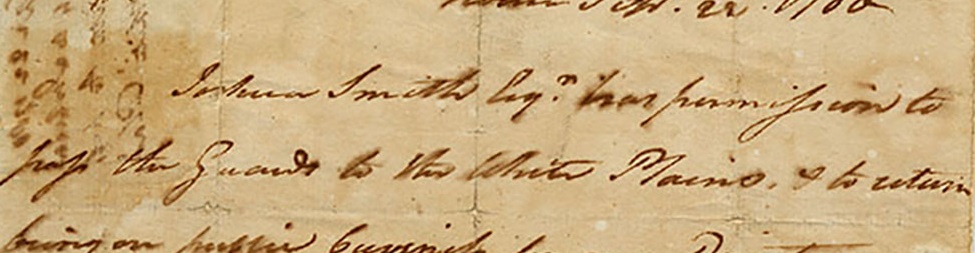 Sepr. 22. 1780
Joshua Smith Esqr. has permission to
pass the Guards to the White Plains. & to return
being on public Business